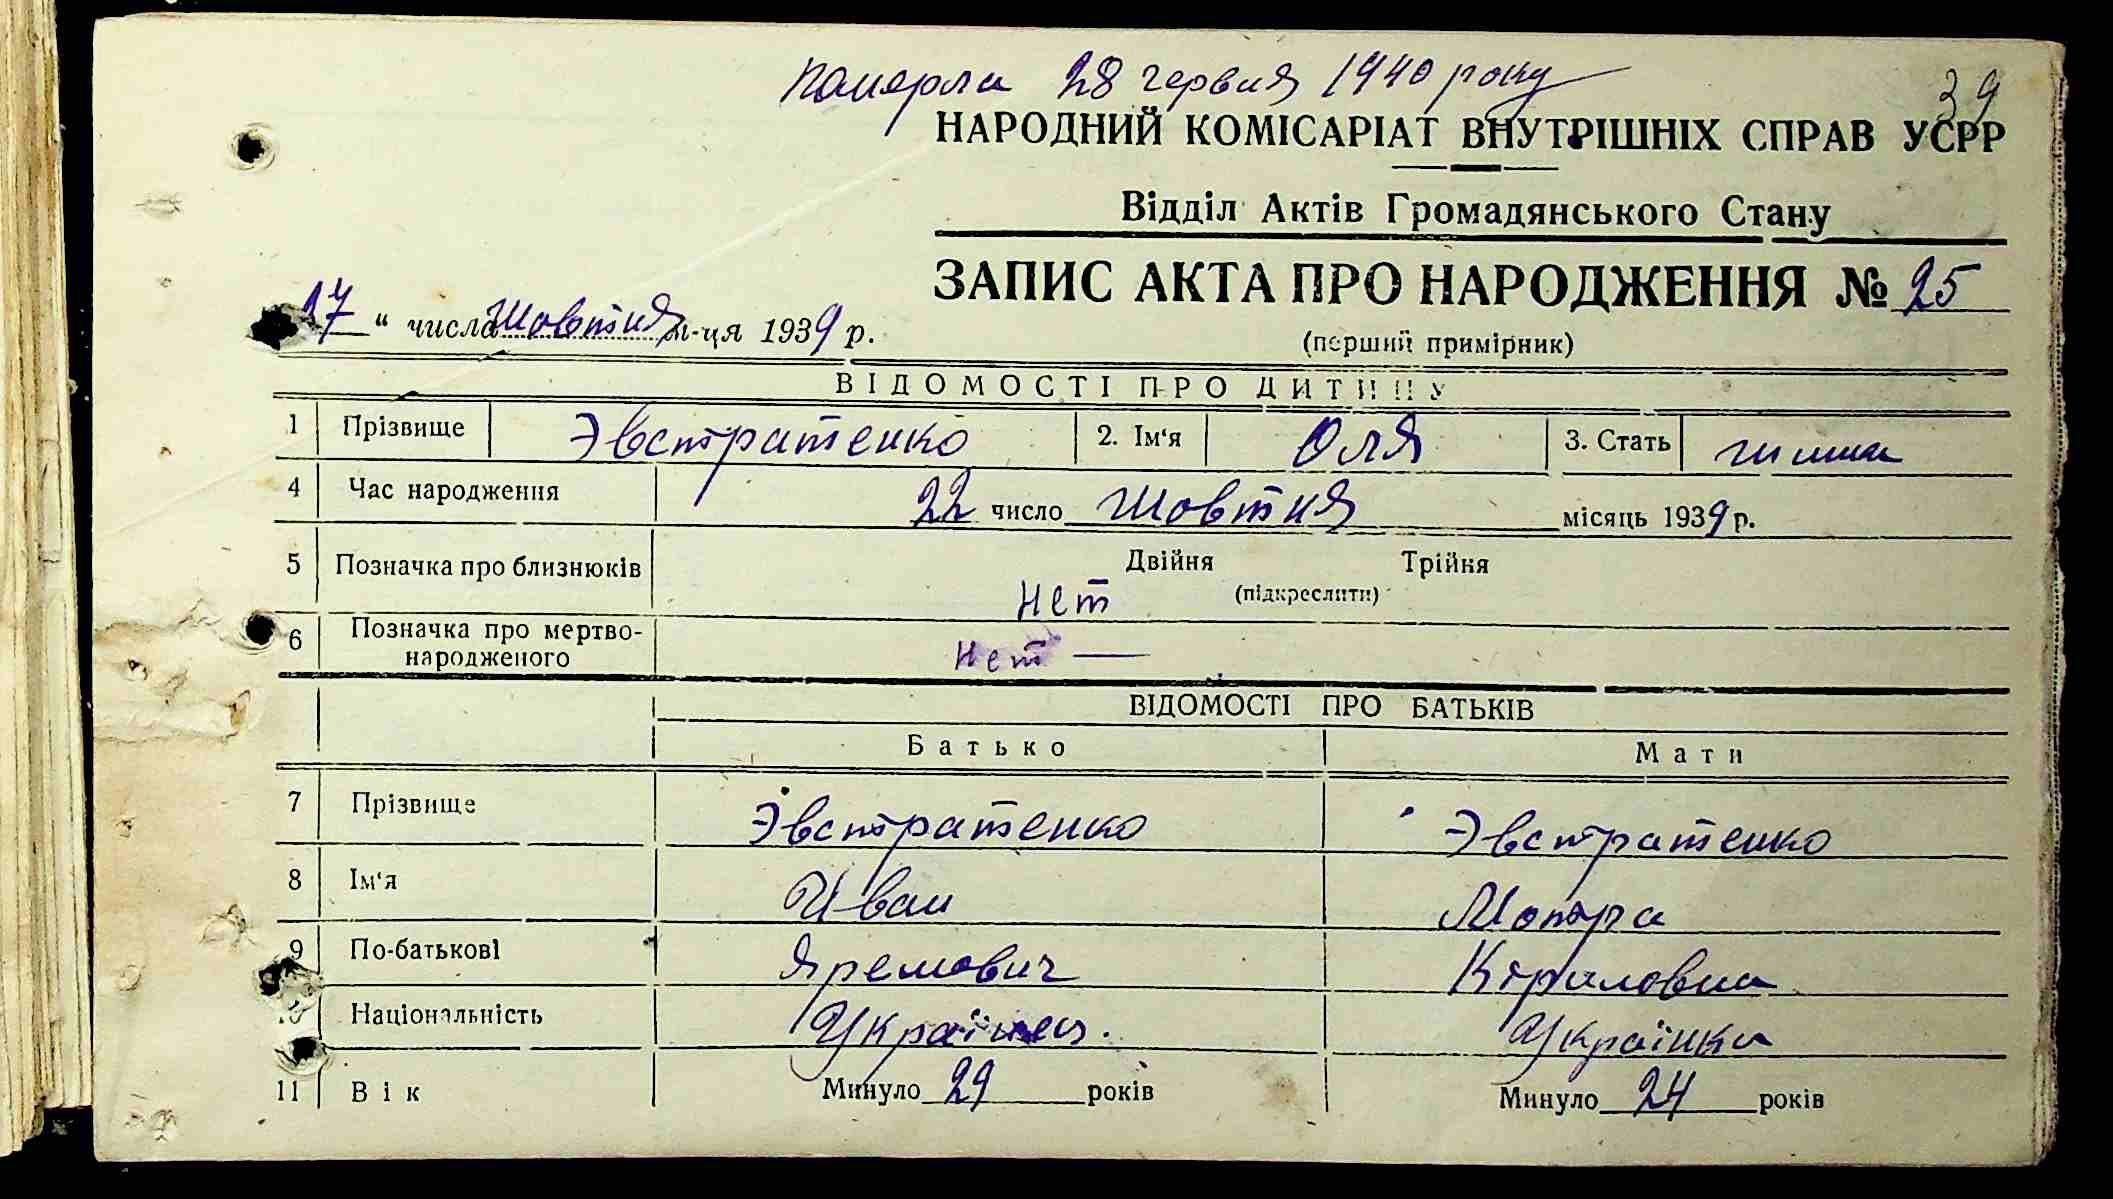 Померла 28 червня 1940 року
39
НАРОДНИЙ КОМІСАРІАТ ВНУТРІШНІХ СПРАВ УСРР
Відділ Актів Громадянського Стану
ЗАПИС АКТА ПРО НАРОДЖЕННЯ № 25
(перший примірник)
27 " числа Жовтня м-ця 1939 р.
ВІДОМОСТІ ПРО ДИТИНУ
1 Прізвище Эвстратенко 2. Ім'я Оля 3. Стать
4 Час народження 22 число Жовтня місяць 1939 р.
5 Позначка про близнюків Двійня Трійня
нет (підкреслити)
6 Позначка про мертво-
народженого нет —
ВІДОМОСТІ ПРО БАТЬКІВ
Батько Мати
7 Прізвище Эвстратенко Эвстратенко
8 Ім'я Иван Мотра
9 По-батькові Яремович Кириловна
10 Національність Українец. Українка
11 Вік Минуло 29 років Минуло 24 років